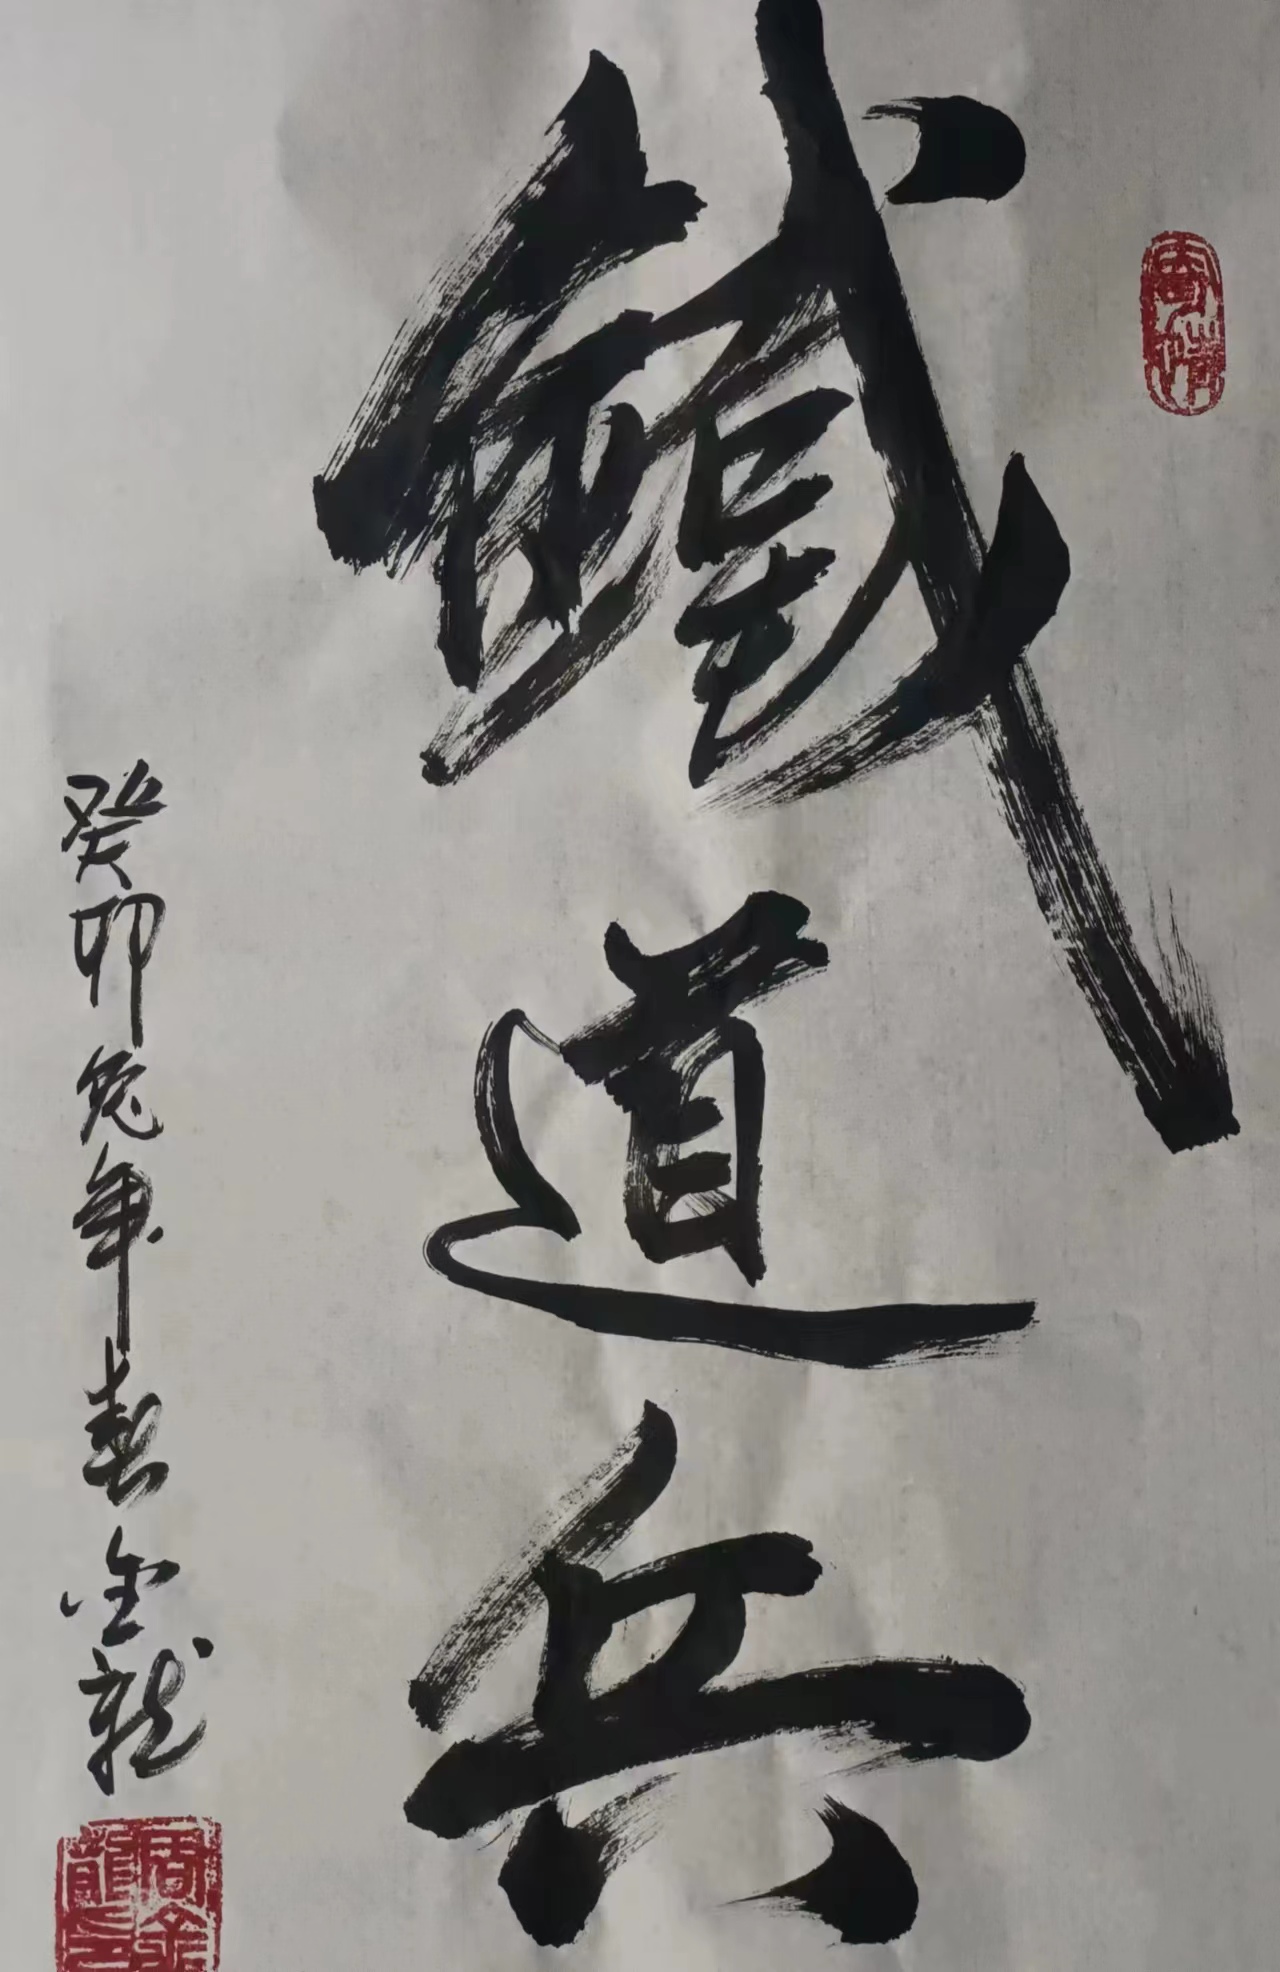 鐵道兵
癸卯兔年春金龍
周金龍印